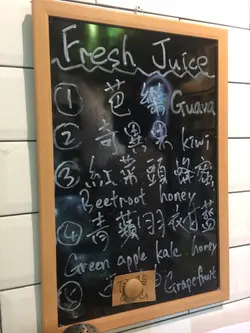 Fresh Juice
① 芭樂 Guava
② 奇異果 kiwi
③ 紅菜頭蜂蜜
Beetroot honey
④ 青蘋羽衣甘藍
Green apple kale honey
⑤ Grapefruit